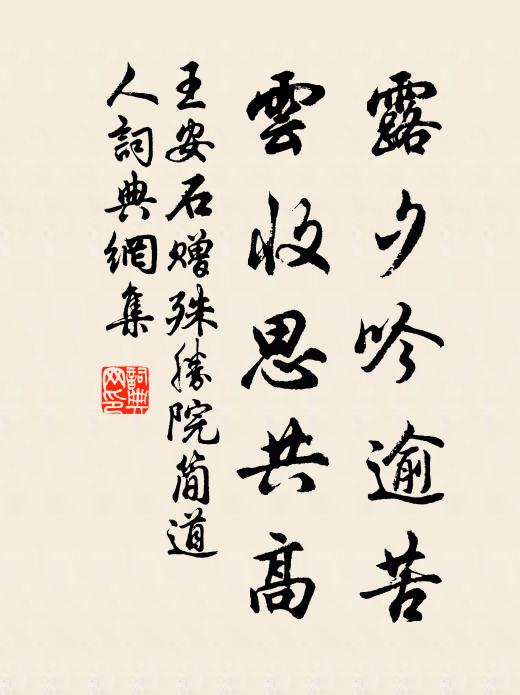 露夕吟逾苦
雲收思共高
王安石贈殊勝院簡道
人詞典網集
詞典
网印